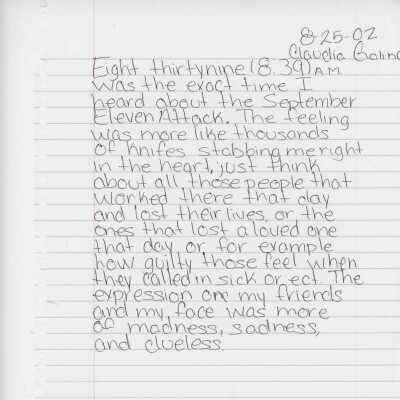 8-25-02
Claudia
Eight thirtynine (8:39) A.M
was the exact time I
heard about the September
Eleven Attack. The feeling
was more like thousands
of knifes stabbing me right
in the heart, just think
about all those people that
worked there that day
and lost their lives, or the
ones that lost a loved one
that day, or for example
how guilty those feel when
they called in sick or ect. The
expression one my friends
and my face was more
of madness, sadness,
and clueless.